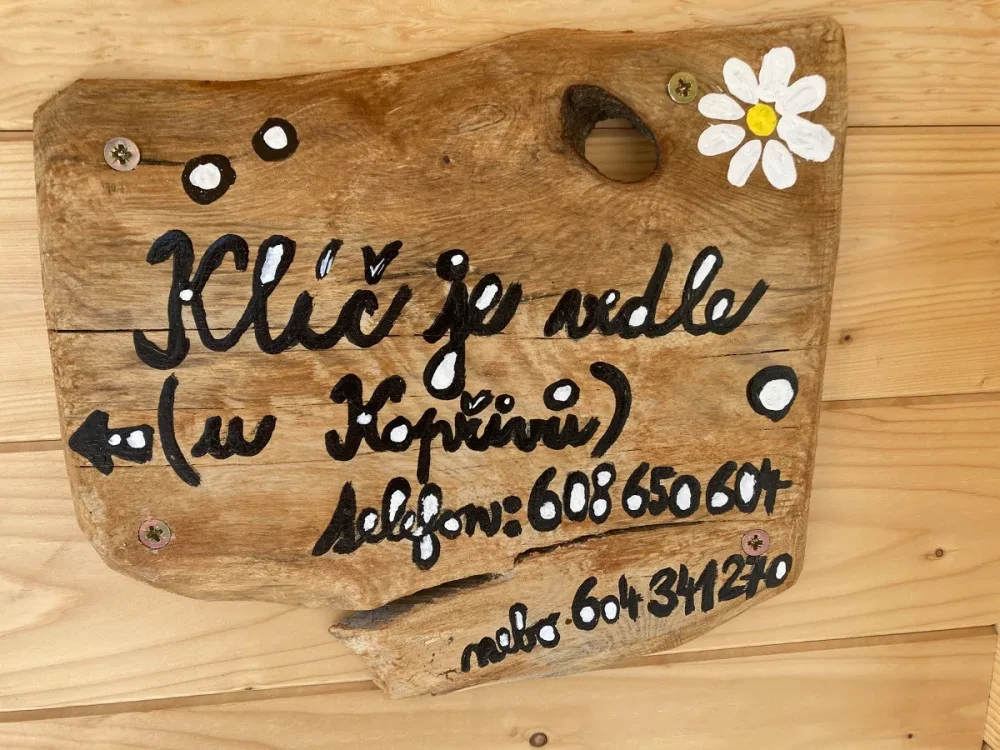 Klíč je vedle
(u Kopřivů)
telefon: 608 650 604
nebo 604 341 270